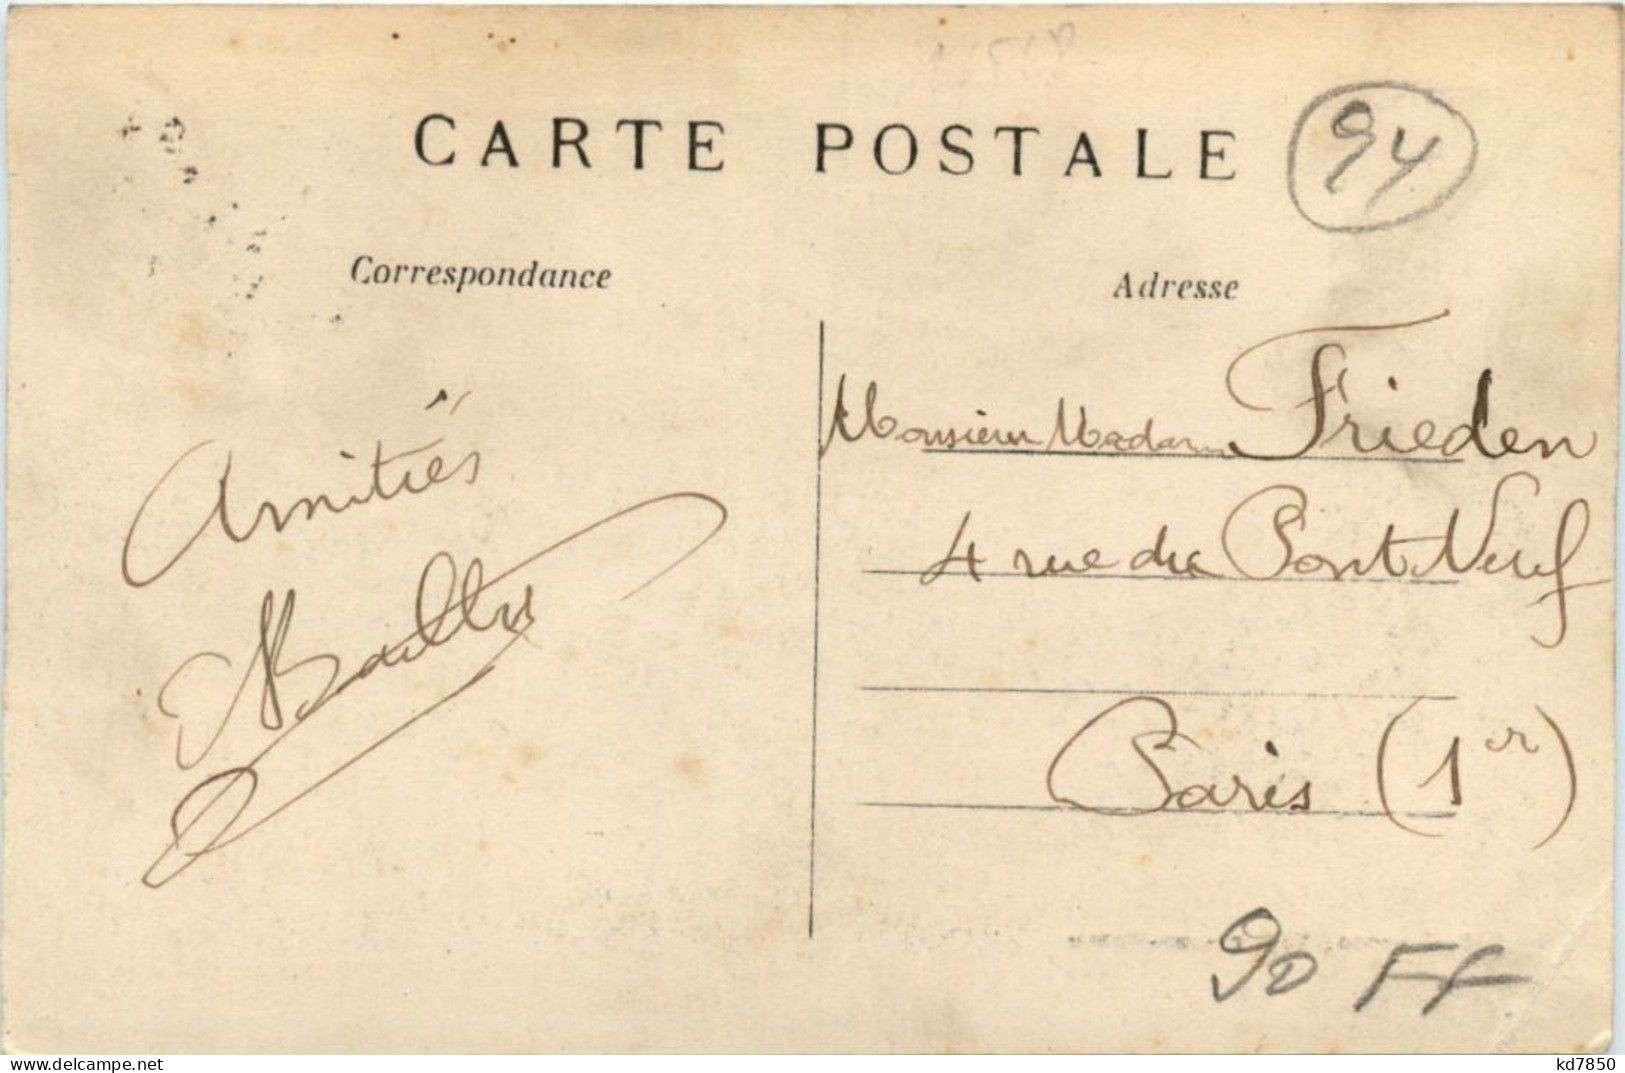 CARTE POSTALE
94
Correspondance
Adresse
Amitiés
Monsieur Madam Frieden
4 rue du Pont Neuf
Paris (1er)
90 FF
delcampe.net
kd7850